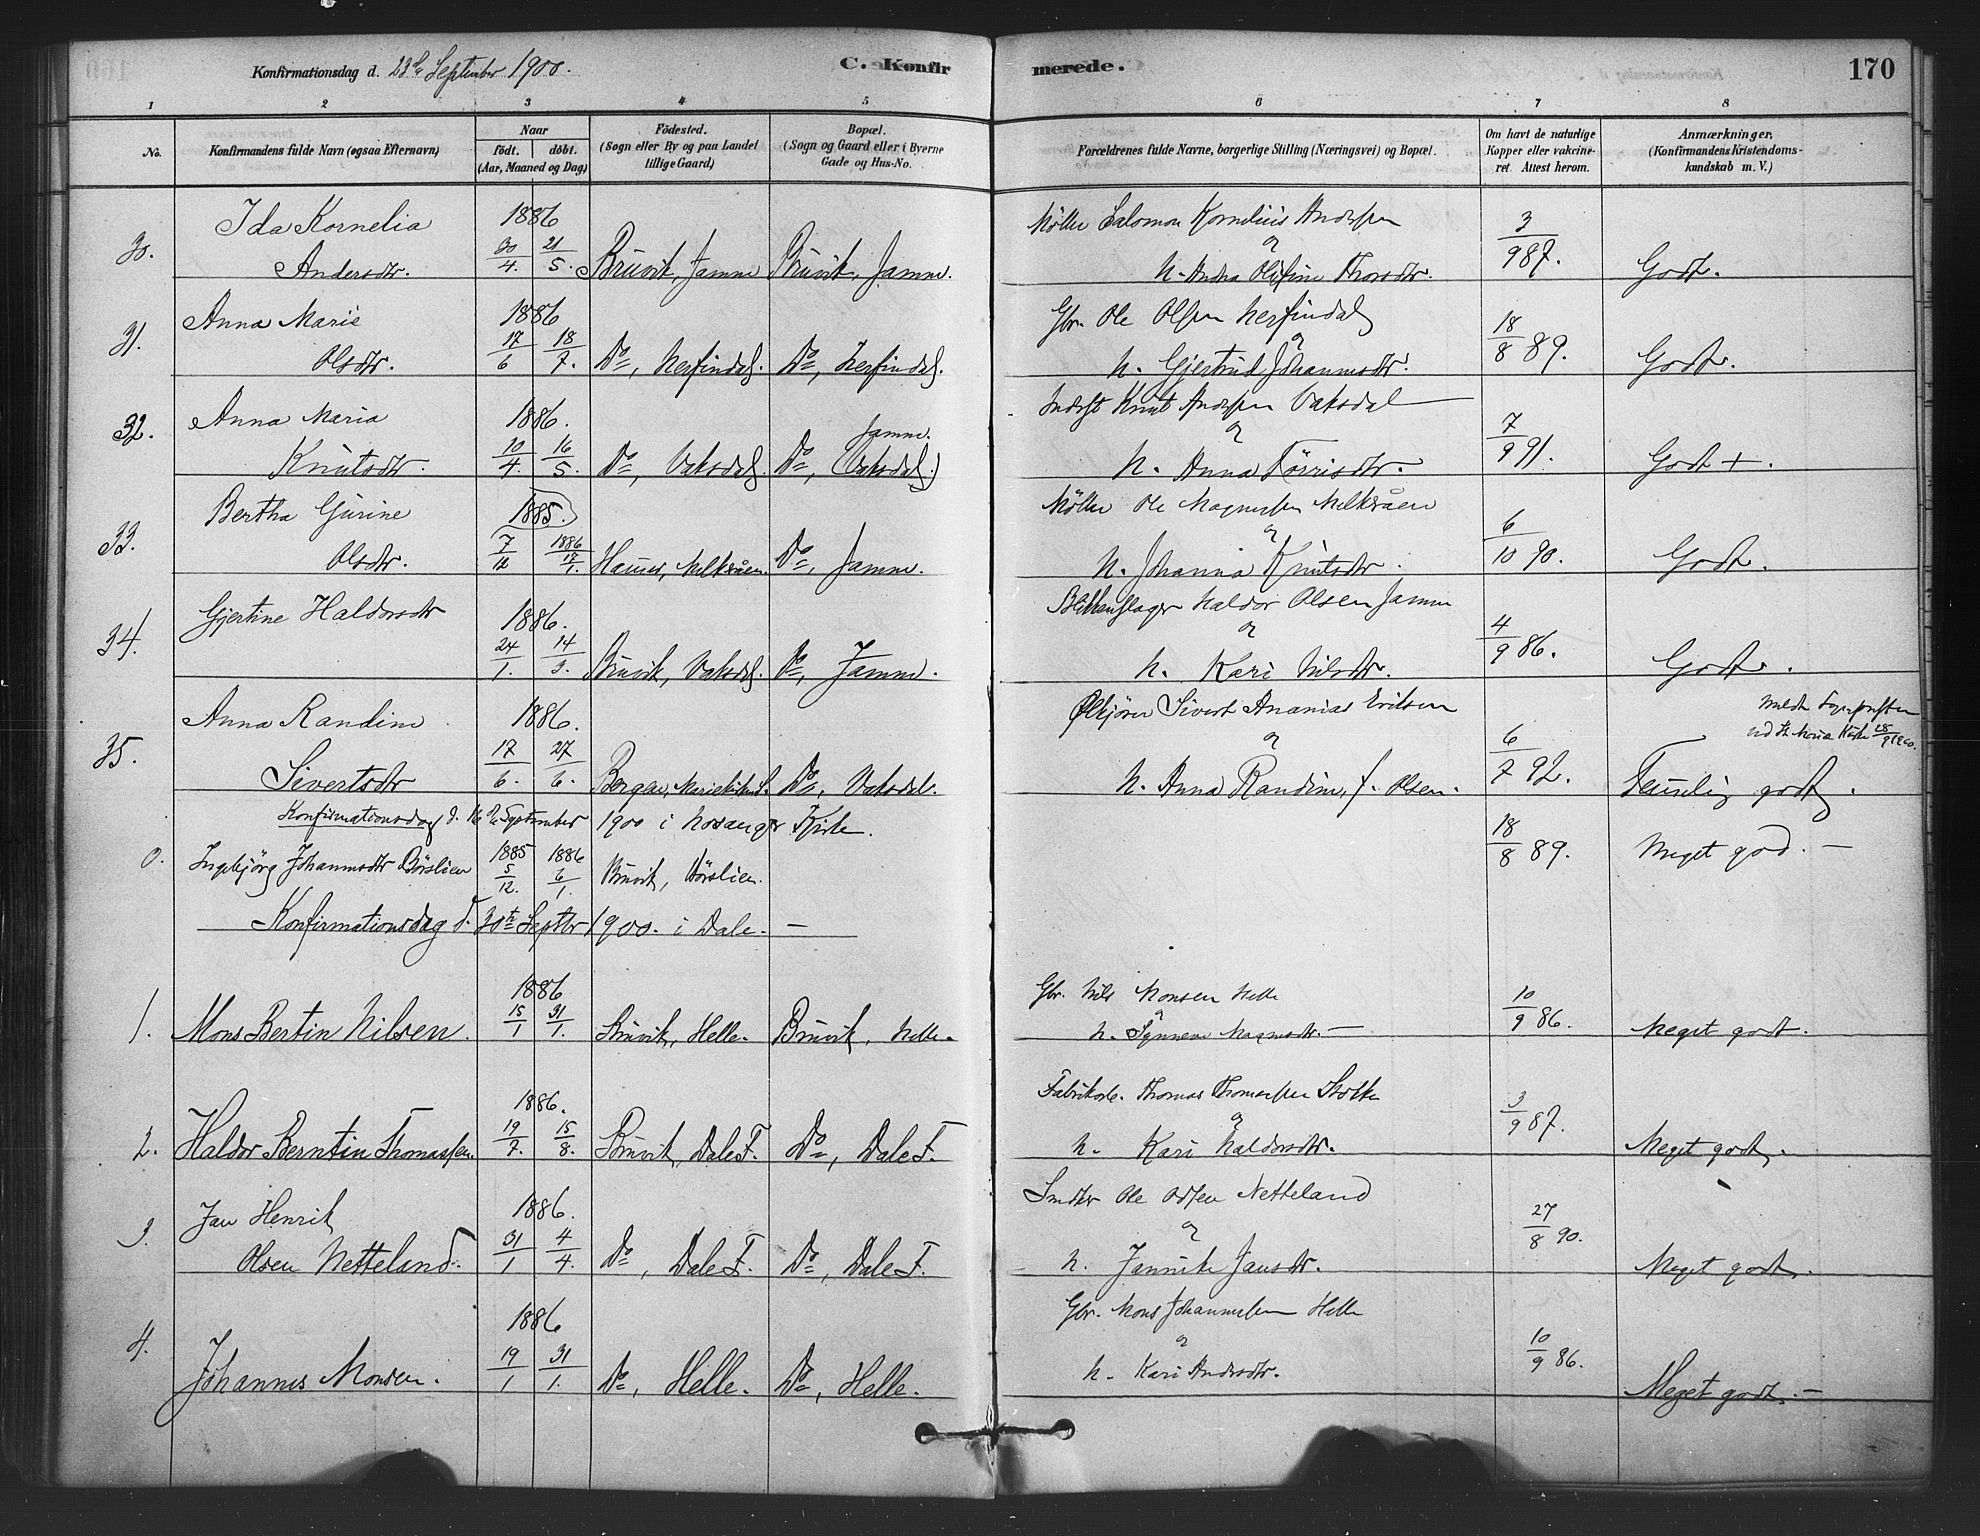 Konfirmationsdag d. 23de September 1900.
C. Konfirmerede.
170
1 2 3 4 5 6 7 8
No.
Konfirmandens fulde Navn (ogsaa Efternavn)
Naar
født. døbt.
(Aar, Maaned og Dag)
Fødested.
(Sogn eller By og paa Landet
tillige Gaard)
Bopæl.
(Sogn og Gaard eller i Byerne
Gade og Hus-No.
Forældrenes fulde Navne, borgerlige Stilling (Næringsvei) og Bopæl.
Om havt de naturlige
Kopper eller vakcine-
ret. Attest herom.
Anmærkninger.
(Konfirmandens Kristendoms-
kundskab m. V.)
30. Ida Kornelia Andersdtr. 1886 30/4. 21/5. Bruvik, Jamne Bruvik, Jamne.
Møller Salomon Kornelius Anderssen
og
H. Andrea Olefine Thorsdtr. 3/9 87. Godt.
31. Anna Marie Olsdtr. 1886 17/6 18/7. Do, Herfindal. Do, Herfindal.
Gbr. Ole Olssen Herfindal
og
H. Gjertrud Johannesdtr. 18/8 89. Godt.
32. Anna Maria Knutsdtr. 1886. 10/4. 16/5. Do, Vaksdal. Do, Jamne. (Vaksdal.)
Inderst Knut Anderssen Vaksdal
og
H. Anna Tørrisdtr. 7/9 91. Godt +.
33. Bertha Gurine Olsdtr. 1885. 7/12 1886 17/1. Hauser, Melkraaen. Do, Jamne.
Møller Ole Magnussen Melkraaen
og
H. Johanna Knutsdtr. 6/10 90. Godt.
34. Gjertine Haldorsdtr 1886. 24/1. 14/3. Bruvik, Vaksdal. Do, Jamne.
Blikkenslager Haldor Olsen Jamne
og
H. Kari Nilsdtr. 4/9 86. Godt.
35. Anna Randine Sivertsdtr 1886. 17/6. 27/6. Bergen, Do, Vaksdal.
Sivert Ananias Eriksen
og
H. Anna Randine, f. Olsen. 6/7 92. Temmelig godt.
Meldt Sognepresten
ved St. Maria Kirke 28/9 1900.
Konfirmationsdag d. 16de September 1900 i Hosanger Kirke.
0. Ingebjørg Johannesdtr Børslien 1885 5/12. 1886 6/1. Bruvik, Børslien. 18/8 89. Meget god. —
Konfirmationsdag d. 30te Septbr 1900. i Dale. —
1. Mons Bertin Nilsen. 1886 15/1 31/1. Bruvik, Helle. Bruvik, Helle.
Gbr. Nils Monsen Helle
og
H. Synneve Magnesdtr. — 10/9 86. Meget godt.
2. Haldor Berntin Thomassen. 1886. 19/7. 15/8. Bruvik, Dale F. Do, Dale F.
Fabrikarb. Thomas Thomassen Stolke
og
H. Kari Haldorsdtr. 3/9 87. Meget godt.
3. Jan Henrik Olsen Netteland. 1886. 31/1 4/4. Do, Dale F. Do, Dale F.
Smeder Ole Odsen Netteland
og
H. Jannike Jansdtr. 27/8 90. Meget godt.
4. Johannes Monsen. 1886 19/1 31/1. Do, Helle. Do, Helle.
Gbr. Mons Johannessen Helle
og
H. Kari Andersdtr. 10/9 86. Meget godt. —